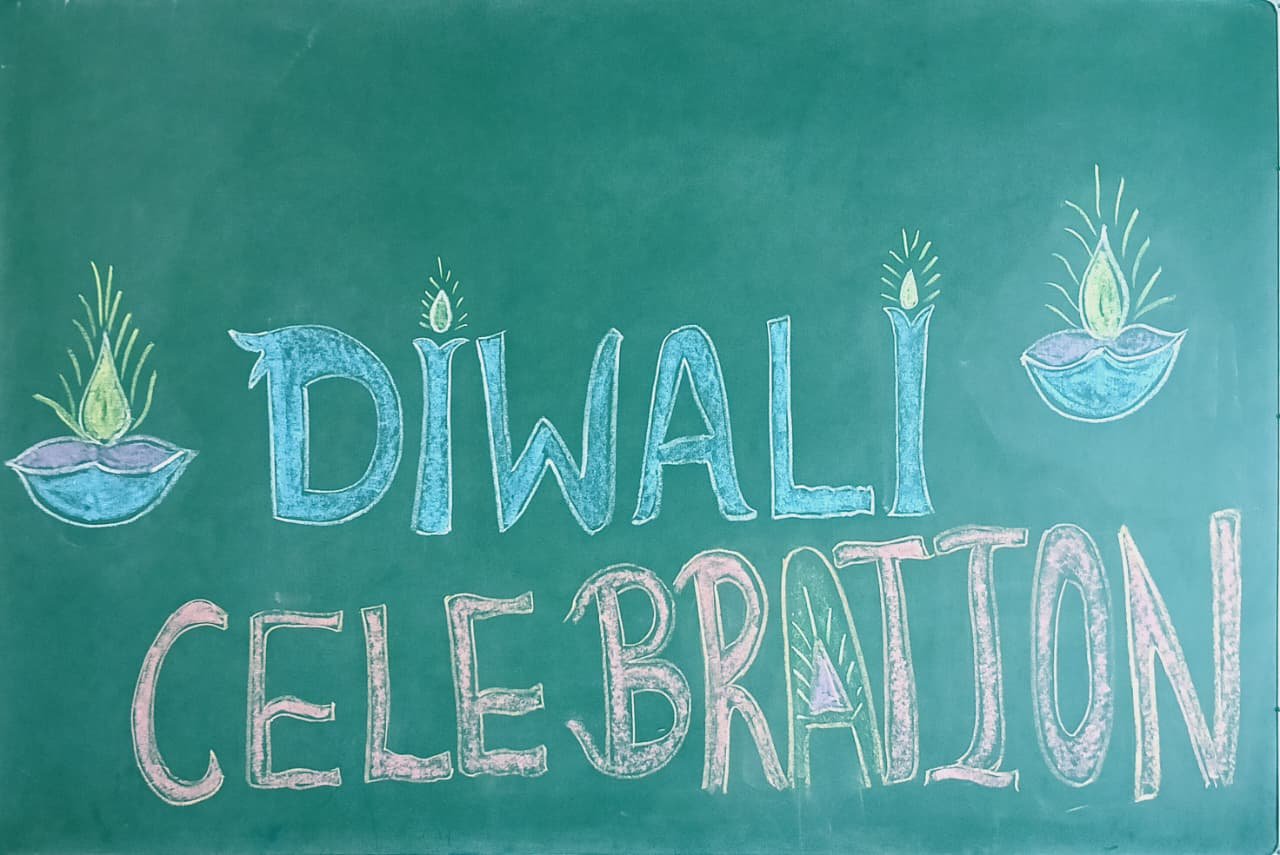 DIWALI
CELEBRATION